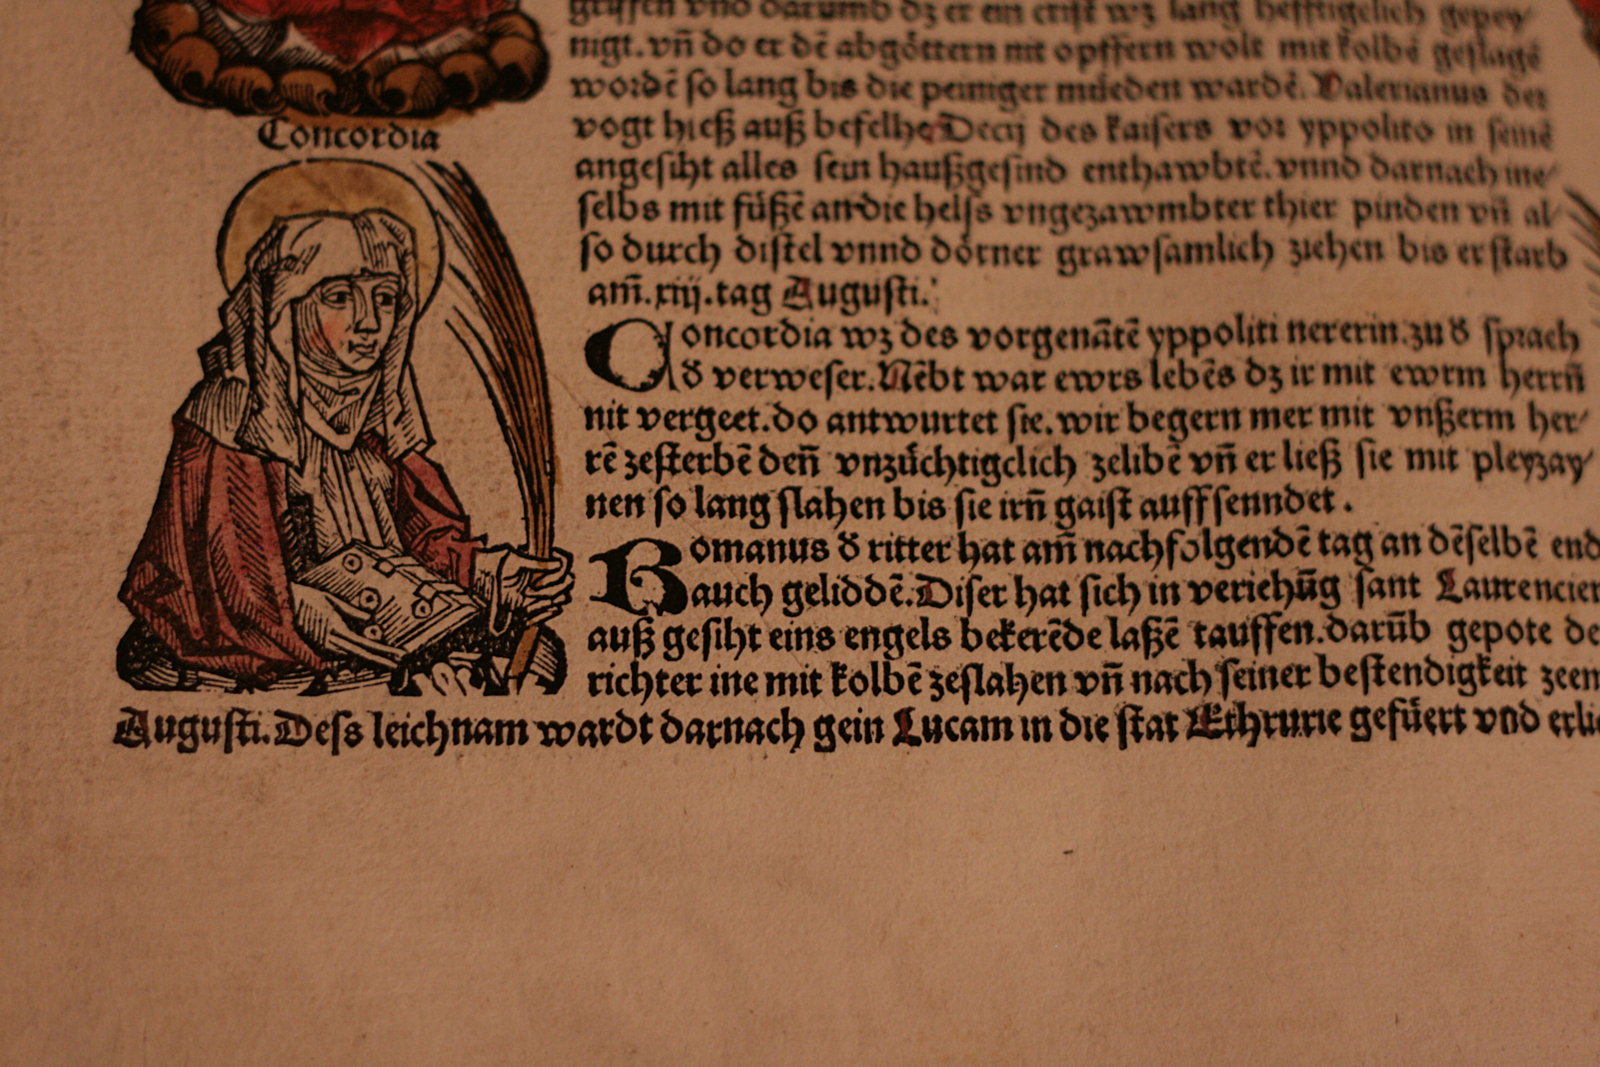 griffen vnd darumb dz er ein crist wz lang hefftigclich gepey-
nigt. vñ do er dẽ abgöttern nit opffern wolt mit kolbẽ geslagẽ
wordẽ so lang bis die peiniger müeden wardẽ. Valerianus der
vogt hieß auß befelhe Decij des kaisers vor yppolito in seinẽ
angesiht alles sein haußgesind enthawbtẽ. vnnd darnach ine
selbs mit füßẽ an die helß vngezawmbter thier pinden vñ al-
so durch distel vnnd dörner grawsamlich ziehen bis er starb
am̃.xiij.tag Augusti.
Concordia
Concordia wz des vorgenãtẽ yppoliti nererin. zu d̕ sprach
d̕ verweser. Nẽbt war ewrs lebẽs dz ir mit ewrm herrñ
nit vergeet. do antwurtet sie. wir begern mer mit vnßerm her-
rẽ zesterbẽ deñ vnzüchtigclich zelibẽ vñ er ließ sie mit pleyzay-
nen so lang slahen bis sie irñ gaist auff senndet.
Romanus d̕ ritter hat am̃ nachfolgendẽ tag an dẽselbẽ end
auch geliddẽ. Diser hat sich in veriehũg sant Laurencien
auß gesiht eins engels bekerẽde laßẽ tauffen. darũb gepote de
richter ine mit kolbẽ zeslahen vñ nach seiner bestendigkeit zeen
Augusti. Dess leichnam wardt darnach gein Lucam in die stat Ethrurie gefüert vnd erlic